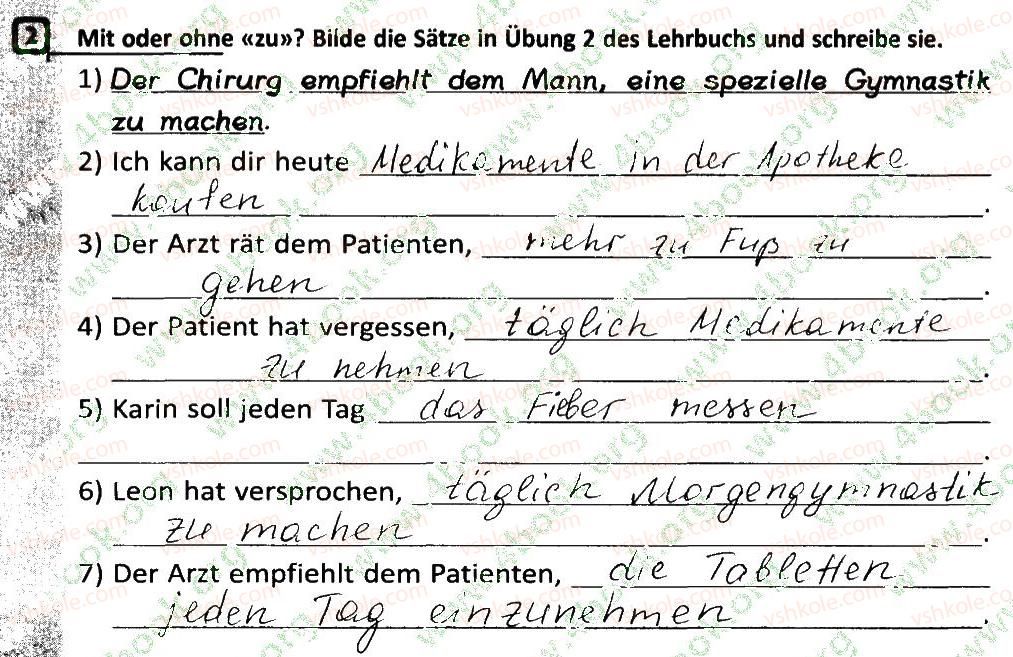 2 Mit oder ohne «zu»? Bilde die Sätze in Übung 2 des Lehrbuchs und schreibe sie.
1) Der Chirurg empfiehlt dem Mann, eine spezielle Gymnastik
zu machen.
2) Ich kann dir heute Medikamente in der Apotheke
kaufen.
3) Der Arzt rät dem Patienten, mehr zu Fuß zu
gehen.
4) Der Patient hat vergessen, täglich Medikamente
zu nehmen.
5) Karin soll jeden Tag das Fieber messen
.
6) Leon hat versprochen, täglich Morgengymnastik
zu machen.
7) Der Arzt empfiehlt dem Patienten, die Tabletten
jeden Tag einzunehmen.